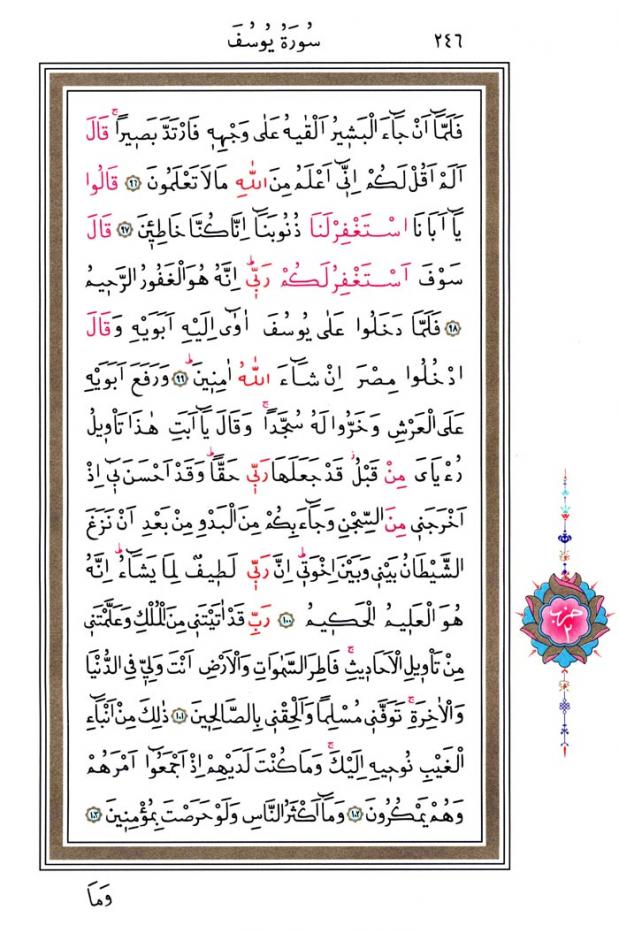 ٢٤٦
سُورَةُ يُوسُفَ
فَلَمَّٓا اَنْ جَٓاءَ الْبَش۪يرُ اَلْقٰيهُ عَلٰى وَجْهِه۪ فَارْتَدَّ بَص۪يراًۚ قَالَ
اَلَمْ اَقُلْ لَكُمْ اِنّ۪ٓي اَعْلَمُ مِنَ اللّٰهِ مَا لَا تَعْلَمُونَ ٩٦ قَالُوا
يَٓا اَبَانَا اسْتَغْفِرْ لَنَا ذُنُوبَنَٓا اِنَّا كُنَّا خَاطِـ۪ٔينَ ٩٧ قَالَ
سَوْفَ اَسْتَغْفِرُ لَكُمْ رَبّ۪يۜ اِنَّهُ هُوَ الْغَفُورُ الرَّح۪يمُ
٩٨ فَلَمَّا دَخَلُوا عَلٰى يُوسُفَ اٰوٰٓى اِلَيْهِ اَبَوَيْهِ وَقَالَ
ادْخُلُوا مِصْرَ اِنْ شَٓاءَ اللّٰهُ اٰمِن۪ينَۜ ٩٩ وَرَفَعَ اَبَوَيْهِ
عَلَى الْعَرْشِ وَخَرُّوا لَهُ سُجَّداًۚ وَقَالَ يَٓا اَبَتِ هٰذَا تَأْو۪يلُ
رُءْيَايَ مِنْ قَبْلُۘ قَدْ جَعَلَهَا رَبّ۪ي حَقاًّۜ وَقَدْ اَحْسَنَ ب۪ٓي اِذْ
اَخْرَجَن۪ي مِنَ السِّجْنِ وَجَٓاءَ بِكُمْ مِنَ الْبَدْوِ مِنْ بَعْدِ اَنْ نَزَغَ
الشَّيْطَانُ بَيْن۪ي وَبَيْنَ اِخْوَت۪يۜ اِنَّ رَبّ۪ي لَط۪يفٌ لِمَا يَشَٓاءُۜ اِنَّهُ
هُوَ الْعَل۪يمُ الْحَك۪يمُ ١٠٠ رَبِّ قَدْ اٰتَيْتَن۪ي مِنَ الْمُلْكِ وَعَلَّمْتَن۪ي
مِنْ تَأْو۪يلِ الْاَحَاد۪يثِۚ فَاطِرَ السَّمٰوَاتِ وَالْاَرْضِ اَنْتَ وَلِيّ۪ فِي الدُّنْيَا
وَالْاٰخِرَةِۚ تَوَفَّن۪ي مُسْلِماً وَاَلْحِقْن۪ي بِالصَّالِح۪ينَ ١٠١ ذٰلِكَ مِنْ اَنْبَٓاءِ
الْغَيْبِ نُوح۪يهِ اِلَيْكَۚ وَمَا كُنْتَ لَدَيْهِمْ اِذْ اَجْمَعُٓوا اَمْرَهُمْ
وَهُمْ يَمْكُرُونَ ١٠٢ وَمَٓا اَكْثَرُ النَّاسِ وَلَوْ حَرَصْتَ بِمُؤْمِن۪ينَ ١٠٣
وَمَا
حزب
٢